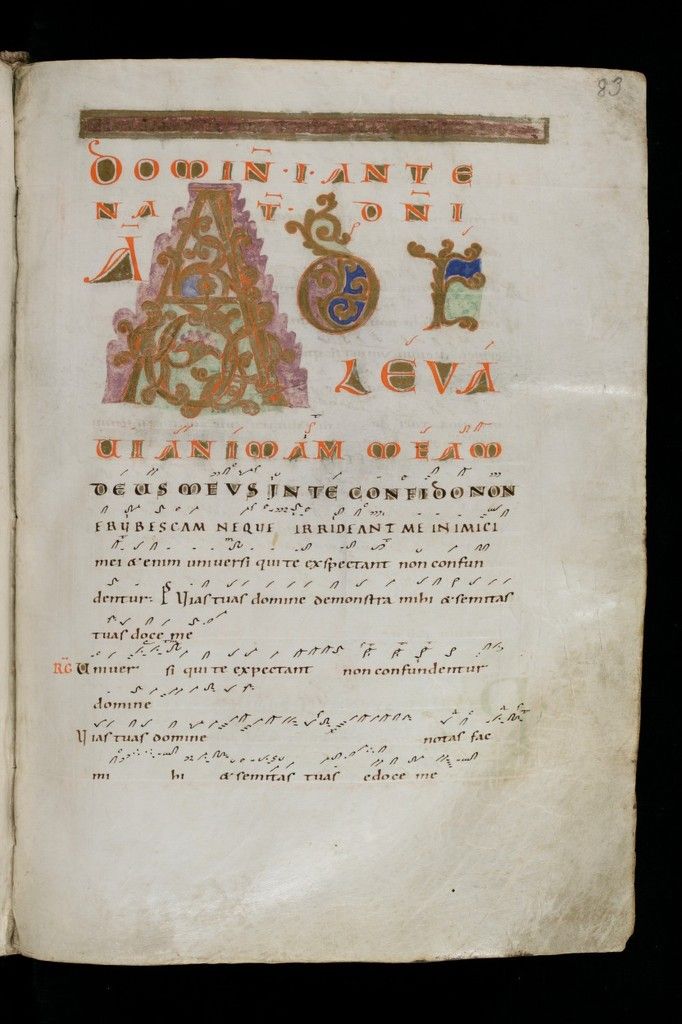 83
DOMIN̄·I·ANTE
NAT̄·DN̄I
Ā
AD TE
LEVA
VI ANIMAM MEAM
DEUS MEVS IN TE CONFIDO NON
ERVBESCAM NEQUE IRRIDEANT ME INIMICI
mei & enim universi qui te exspectant non confun
dentur: Ps Vias tuas domine demonstra mihi & semitas
tuas doce me
RG Univer si qui te expectant non confundentur
domine
Vias tuas domine notas fac
mi hi & semitas tuas edoce me